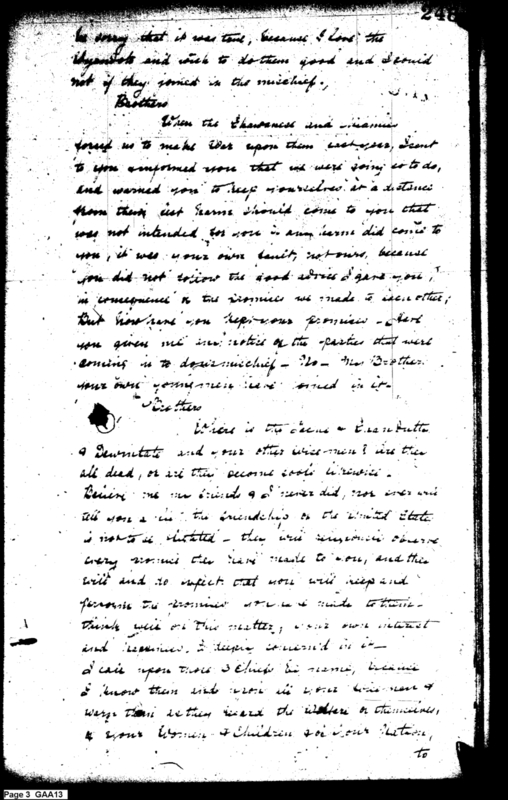 248
be sorry that it was true, because I love the
Wyandots and wish to do them good and I could
not if they joined in the mischief.
Brothers
When the Shawanese and Miamis
forced us to make War upon them last year, I sent
to you & informed you that we were going so to do,
and warned you to keep yourselves at a distance
from them, lest harm should come to you that
was not intended for you if any harm did come to
you, it was your own fault, not ours, because
you did not follow the good advice I gave you,
in consequence of the promises we made to each other;
But how have you kept your promises – Have
you given me any notice of the parties that were
coming in to do us mischief – No – My Brother
your own young men have joined in it –
Brothers
Where is the &
& and your other wise men? are they
all dead, or are they become fools likewise.
Believe me my friends I never did, nor ever will
tell you a lie, the friendship of the United States
is not to be – they will observe
every promise they have made to you, and they
will and do expect that you will keep and
perform the promises you have made to them –
think well on this matter, your own interest
and happiness is deeply concern'd in it –
I call upon those Chiefs by name, because
I know them and upon all your wise men &
warn them as they regard the Welfare of themselves,
of your Women & Children & of your Nation,
to
Page 3 GAA13